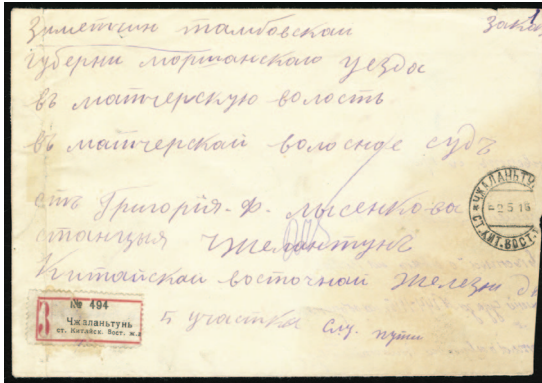 Зиметчин тамбовскай Зака
губерни моршанскаго уезда
въ матчерскую волость
въ матчерскай волосное судъ
отъ Григорія-Ф. Лысенкова
станцыя Чжелантунь
Китайскай восточнай железн
5 участка слу. пути
№ 494
З
Чжаланьтунь
ст. Китайск. Вост. ж.д
ЧЖАЛАНЬТУ
2 5 16
СТ. КИТ. ВОСТ.